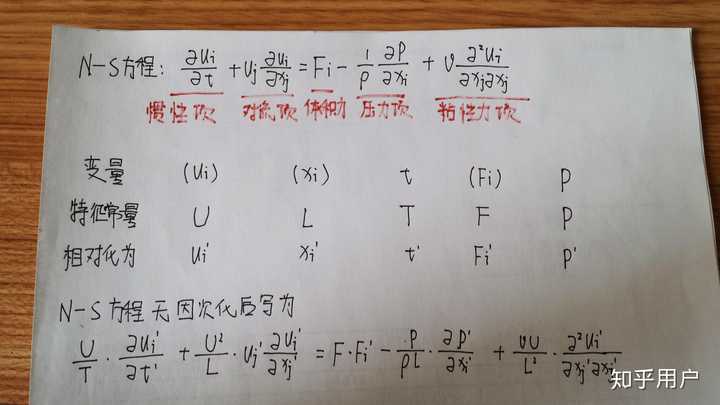 N-S方程: ∂ui/∂t + uj ∂ui/∂xj = Fi - 1/ρ ∂P/∂xi + ν ∂²ui/∂xj∂xj
惯性项 对流项 体积力 压力项 粘性力项
变量 (ui) (xi) t (Fi) p
特征常量 U L T F P
相对化为 ui' xi' t' Fi' p'
N-S方程无因次化后写为
U/T · ∂ui'/∂t' + U²/L · uj' ∂ui'/∂xj' = F·Fi' - P/ρL · ∂p'/∂xi' + νU/L² · ∂²ui'/∂xj'∂xj'
知乎用户